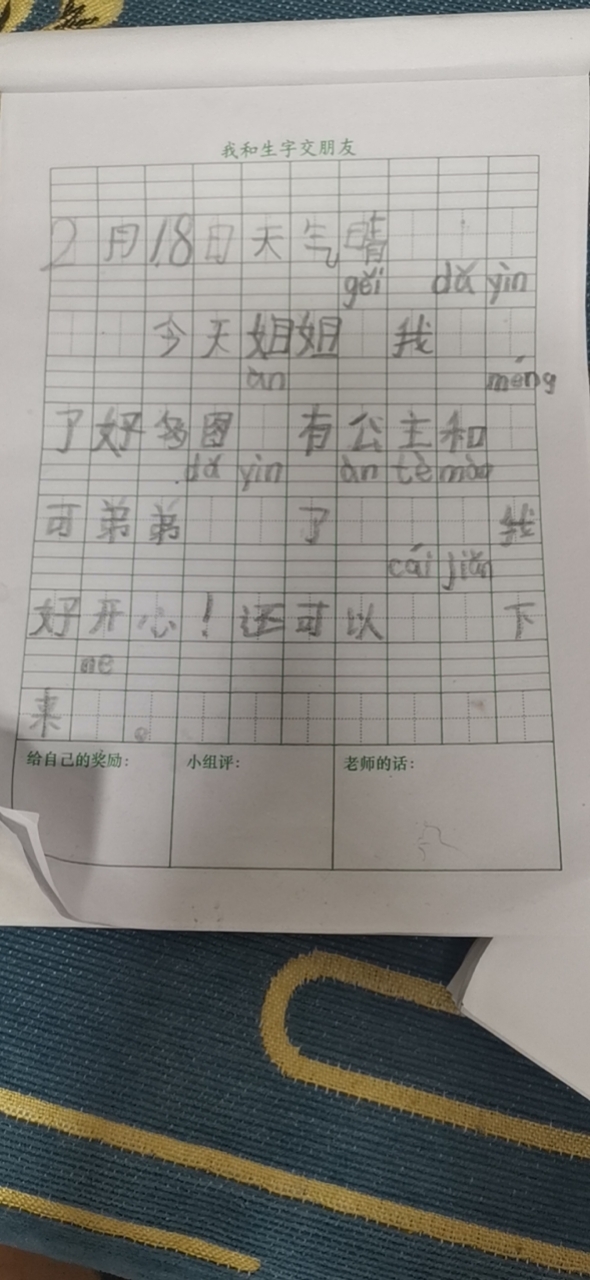 我和生字交朋友
2月18日天气晴
gěi dǎ yìn
今天姐姐 我
àn méng
了好多图 有公主和
dǎ yìn àn tè màn
可弟弟 了 我
cái jiǎn
好开心！还可以 下
ne
来 。
给自己的奖励： 小组评： 老师的话：